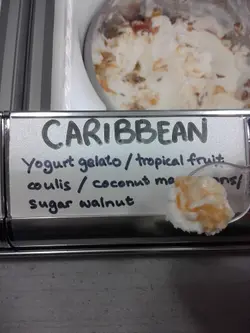 CARIBBEAN
Yogurt gelato / tropical fruit
coulis / coconut
sugar walnut